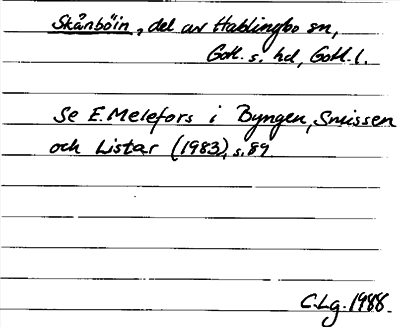 Skånböin, del av Hablingbo sn,
Gotl. s. hd, Gotl. l.
Se E. Melefors i Byngen, Smissen
och Listar (1983), s. 89.
C.Lg. 1988.